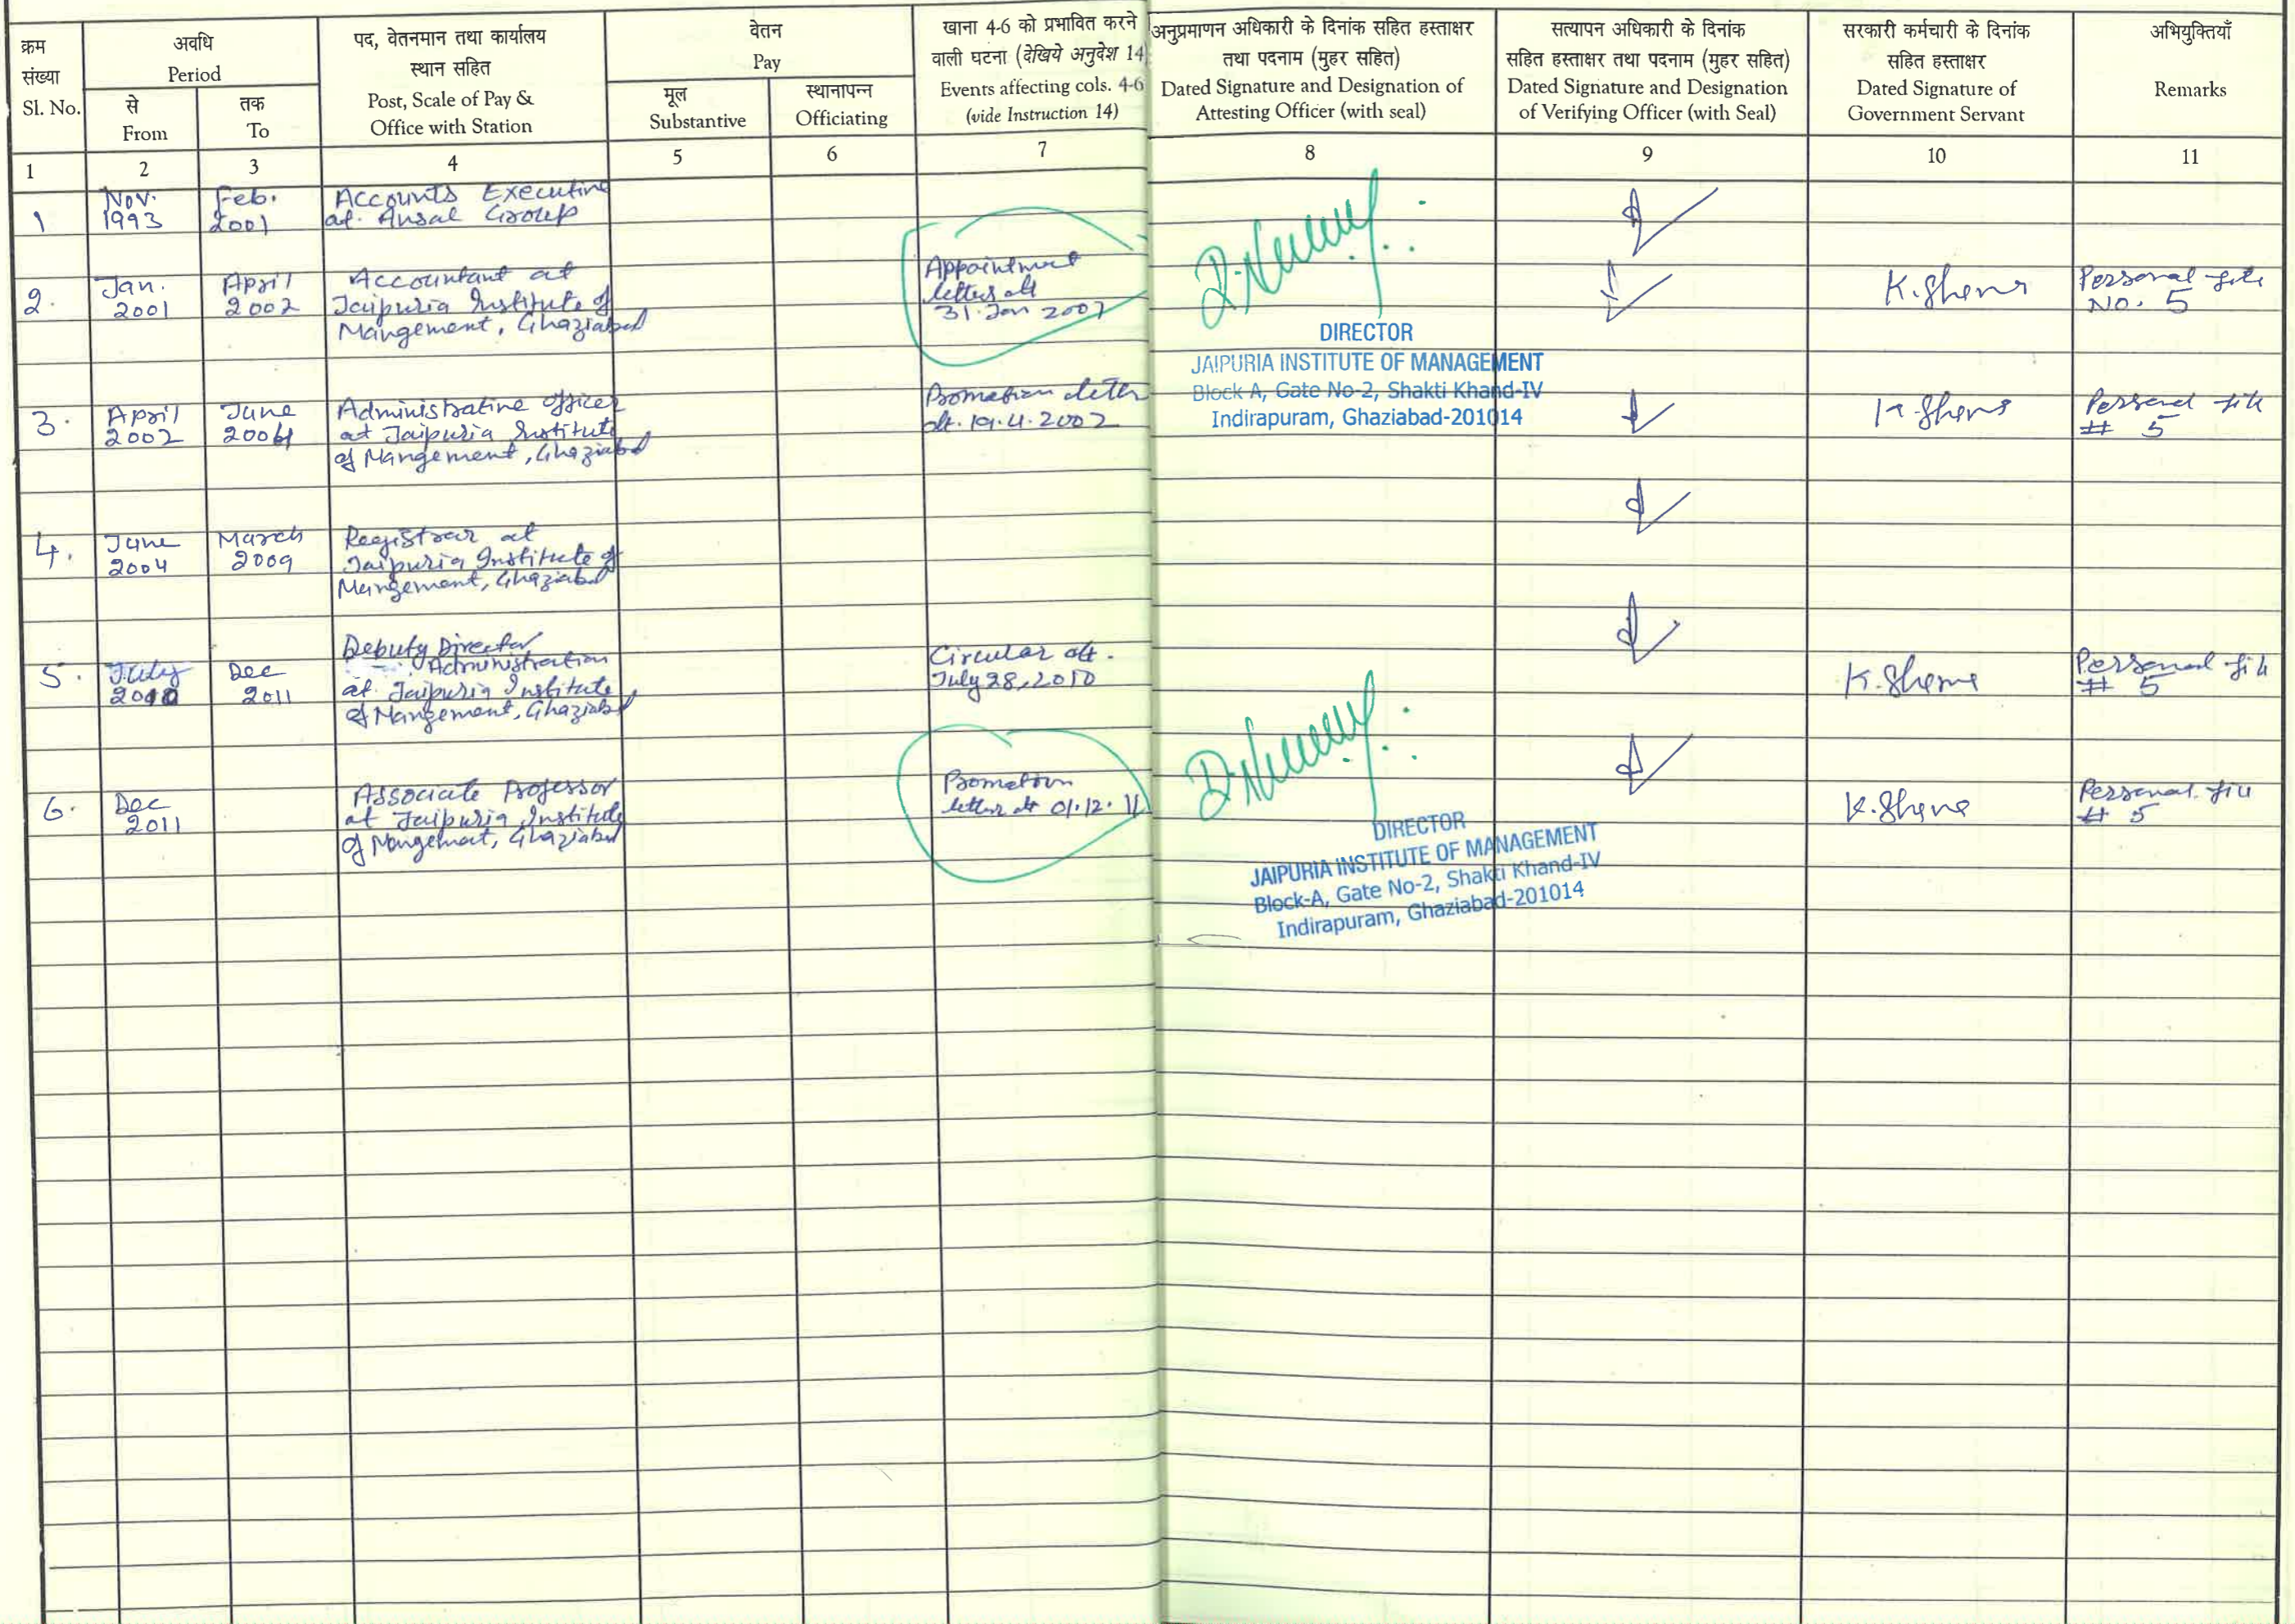 क्रम
संख्या
Sl. No.
अवधि
Period
से
From
तक
To
पद, वेतनमान तथा कार्यालय
स्थान सहित
Post, Scale of Pay &
Office with Station
वेतन
Pay
मूल
Substantive
स्थानापन्न
Officiating
खाना 4-6 को प्रभावित करने
वाली घटना (देखिये अनुदेश 14)
Events affecting cols. 4-6
(vide Instruction 14)
अनुप्रमाणन अधिकारी के दिनांक सहित हस्ताक्षर
तथा पदनाम (मुहर सहित)
Dated Signature and Designation of
Attesting Officer (with seal)
सत्यापन अधिकारी के दिनांक
सहित हस्ताक्षर तथा पदनाम (मुहर सहित)
Dated Signature and Designation
of Verifying Officer (with Seal)
सरकारी कर्मचारी के दिनांक
सहित हस्ताक्षर
Dated Signature of
Government Servant
अभियुक्तियाँ
Remarks
1 2 3 4 5 6 7 8 9 10 11
1
Nov.
1993
Feb.
2001
Accounts Executive
at. Ansal Group
2.
Jan.
2001
April
2002
Accountant at
Jaipuria Institute of
Mangement, Ghaziabad
Appointment
letter dt
31. Jan 2001
DIRECTOR
JAIPURIA INSTITUTE OF MANAGEMENT
Block A, Gate No-2, Shakti Khand-IV
Indirapuram, Ghaziabad-201014
Personal file
No. 5
3.
April
2002
June
2004
Administrative officer
at Jaipuria Institute
of Mangement, Ghaziabad
Promotion letter
dt. 19.4.2002
Personal file
# 5
4.
June
2004
March
2009
Registrar at
Jaipuria Institute of
Mangement, Ghaziabad
5.
July
2010
Dec
2011
Deputy Director
Administration
at Jaipuria Institute
of Mangement, Ghaziabad
Circular dt.
July 28, 2010
Personal file
# 5
6.
Dec
2011
Associate Professor
at Jaipuria Institute
of Mangement, Ghaziabad
Promotion
letter dt 01.12.11
DIRECTOR
JAIPURIA INSTITUTE OF MANAGEMENT
Block-A, Gate No-2, Shakti Khand-IV
Indirapuram, Ghaziabad-201014
Personal file
# 5